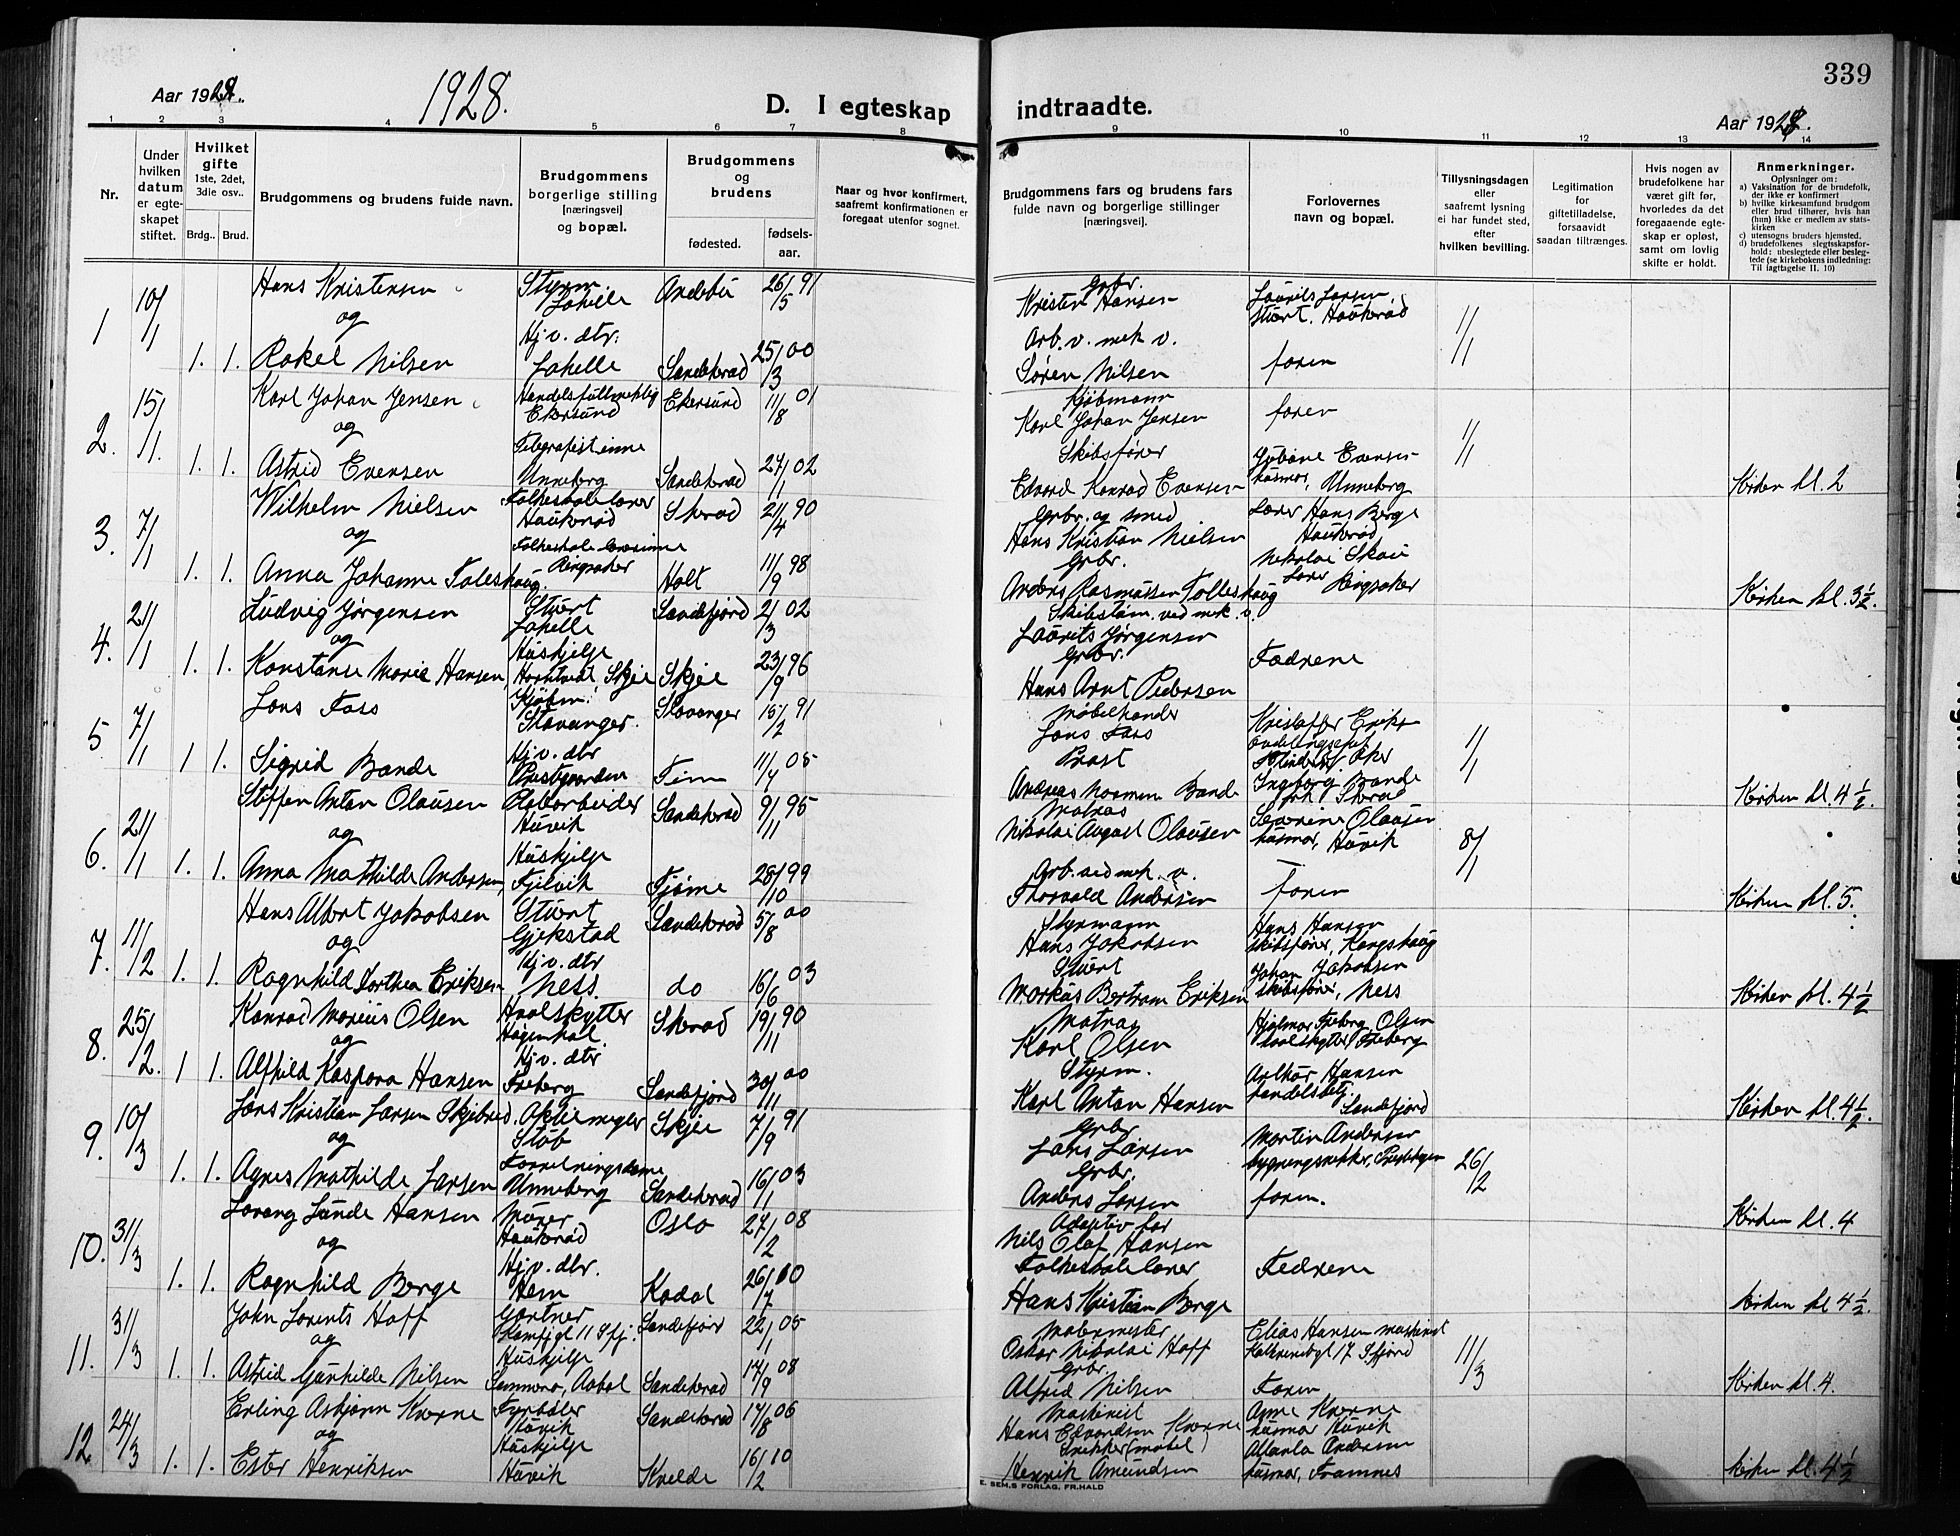 339
Aar 1928.
1928.
D. I egteskap
indtraadte.
Aar 1928.
1 2 3 4 5 6 7 8
9 10 11 12 13 14
Nr.
Under hvilken datum er egteskapet stiftet.
Hvilket gifte 1ste, 2det, 3die osv..
Brdg.. Brud.
Brudgommens og brudens fulde navn.
Brudgommens borgerlige stilling [næringsvei] og bopæl.
Brudgommens og brudens
fødested. fødsels-aar.
Naar og hvor konfirmert, saafremt konfirmationen er foregaat utenfor sognet.
Brudgommens fars og brudens fars fulde navn og borgerlige stillinger [næringsvei].
Forlovernes navn og bopæl.
Tillysningsdagen eller saafremt lysning ei har fundet sted, efter hvilken bevilling.
Legitimation for giftetilladelse, forsaavidt saadan tiltrænges.
Hvis nogen av brudefolkene har været gift før, hvorledes da det foregaaende egteskap er opløst, samt om lovlig skifte er holdt.
Anmerkninger.
Oplysninger om:
a) Vaksination for de brudefolk, der ikke er konfirmert
b) hvilke kirkesamfund brudgom eller brud tilhører, hvis han (hun) ikke er medlem av statskirken
c) utensogns bruders hjemsted.
d) brudefolkenes slegtsskapsforhold: ubeslegtede eller beslegtede (se kirkebokens indledning: Til iagttagelse II. 10)
1 10/1 Hans Kristensen Styrm Andebu 26/5 91 Grbr. Kristen Hansen Laurits Larsen stuert. Haukerød 1/1
og
1. 1. Rakel Nilsen Hj.v. dtr. Sandeherad 25/3 00 Arb. v. mek v. Søren Nilsen faren
2. 15/1 Karl Johan Jensen Handelsfuldmektig Ekersund Ekersund 11/8 01 Kjøbmann Karl Johan Jensen faren 1/1
og
1. 1. Astrid Evensen Telegrafistinne Unneberg Sandeherad 27/1 02 Skibsfører Edvard Konrad Evensen Evensen husmor, Unneberg Kirken kl. 2
3. 7/1 Wilhelm Nielsen Folkeskolelærer Haukerød Skerad 21/4 90 Grbr. og smed Hans Kristian Nielsen Lærer Hans Berge Haukerød
og
1. 1. Anna Johanne Foleshaug Folkeskolelærerinne Ringsaker Holt 11/9 98 Grbr. Anders Rasmussen Folleshaug Nikolai Skau Lærer Ringsaker Kirken kl. 3½.
4. 21/1 Ludvig Jørgensen Stuert Sandefjord 2/3 02 Skibstøm. ved mek. v. Laurits Jørgensen
og
1. 1. Konstanse Marie Hansen, Hushjelp Skjee Skjee 23/9 96 Grbr. Hans Arnt Pedersen Fædrene
5 7/1 Lars Foss Kjøbm. Stavanger. Stavanger 15/2 91 Møbelhandler Lars Foss Kristoffer 1/1
1 1. Sigrid Bande Hj.v. dtr Prestgaarden Time 11/4 05 Prost Andreas Bande Ingeborg Bande Kirken kl. 4½.
6. 21/1 Steffen Anton Olausen Huvik Sandeherad 9/11 95 Matros Nikolai August Olausen Severine Olausen husmor, Huvik 8/1
og
1. 1. Anna Mathilde Andersen, Hushjelp Tjøme 28/10 99 Arb. ved mek. v. Thorvald Andersen faren Kirken kl. 5.
7. 11/2 Hans Albert Jakobsen Stuert Gjekstad Sandeherad 5/8 00 Styrmann Hans Jakobsen Hans Hansen skibsfører,
og
1. 1. Ragnhild Dorthea Eriksen Hj.v. dtr Ness. do 16/6 03 Stuert Markus Bertram Eriksen Johan Jakobsen skibsfører, Ness Kirken kl. 4½
8. 25/12. Konrad Marius Olsen Hvalskytter Skerad 19/11 90 Matros Karl Olsen Hjalmar Freberg Olsen hvalskytter Freberg
og
1 1. Alfhild Kaspara Hansen Hj.v. dtr Freberg Sandefjord 30/11 00 Styrm. Karl Anton Hansen Arthur Hansen handelsbetj Sandefjord Kirken kl. 4½
9. 10/3 Lars Kristian Larsen Skjebred. Skjee 7/9 91 Grbr Lars Larsen Martin Andersen 26/2
og
1. 1. Agnes Mathilde Larsen Forretningsdame Unneberg Sandeherad 16/1 03 Grbr. Anders Larsen faren. Kirken kl. 4
10. 31/3 Lorang Lunde Hansen Murer Haukerød Oslo 27/2 08 Adoptiv far Nils Olaf Hansen
og
1. 1. Ragnhild Berge Hj.v. dtr. Hem Kodal 26/7 10 Folkeskolelærer Hans Kristian Berge Fedrene Kirken kl 4½.
11. 31/3 John Lorents Hoff Gartner Sandefjord 22/1 05 Malermester Oskar Nikolai Hoff Elias Hansen maskinist 11/3
og
1. 1. Astrid Gunhilde Nilsen Hushjelp Sandeherad 17/9 08 Grbr. Alfred Nilsen Faren Kirken kl. 4.
12. 24/3 Erling Asbjørn Kverne Fyrbøter Huvik Sandeherad 17/8 06 Maskinist Hans Edvardsen Kverne Anne Kverne husmor Huvik
og
1. 1. Ester Henriksen Hushjelp Huvik Kvelde 16/2 10 Snekker (møbel) Henrik Amundsen Andersen husmor, Framnes Kirken kl. 4½
E. SEM,S FORLAG, FR.HALD